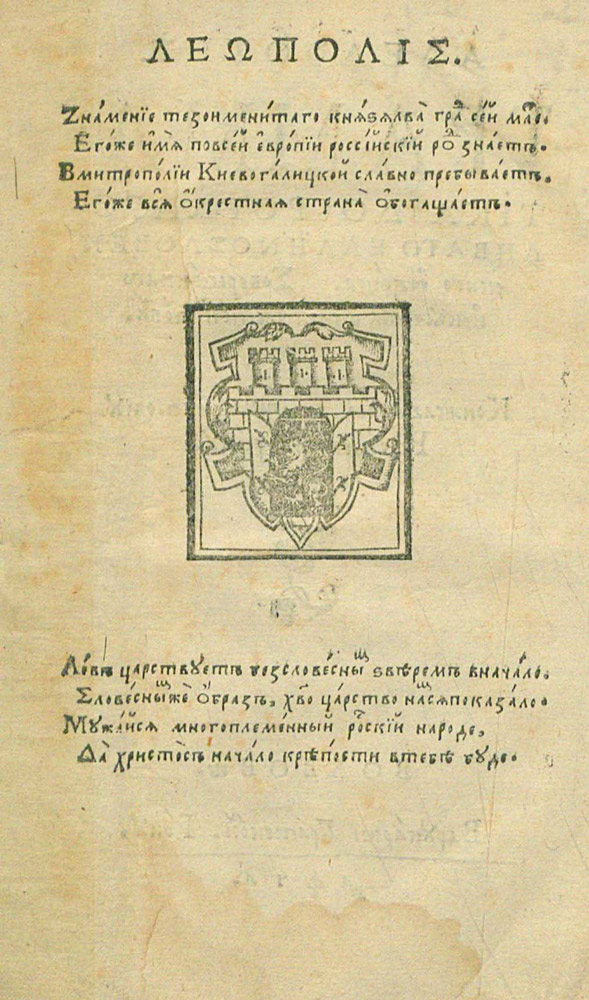 ЛЕѠПОЛІΣ.
Зна́менїе тезоименита́го кнѧ́ѕѧ лва̀ гра́ⷣ се́й ма́еⷮ.
Его́же и҆́мѧ по все́й е҆вро́пїи россі́йскїй ро́ⷣ зна́етъ.
В митропо́лїи Києвога́лицкой сла́вно пребыва́етъ.
Его́же всѧ̀ ѻ҆кре́стнаѧ страна̀ ѻ҆богаща́етъ.
Ле́въ ца́рствуетъ безслове́сныⷨ ѕвѣре́мъ в нача́ло.
Слове́сныⷨже ѻ҆́бразъ, хв҃о ца́рство на́сѧ показа́ло.
Мужа́йсѧ многоплеме́нный ро́ⷭскїй наро́де,
Да̀ христо́съ нача́ло крѣ́пости в тебѣ̀ бу́де.